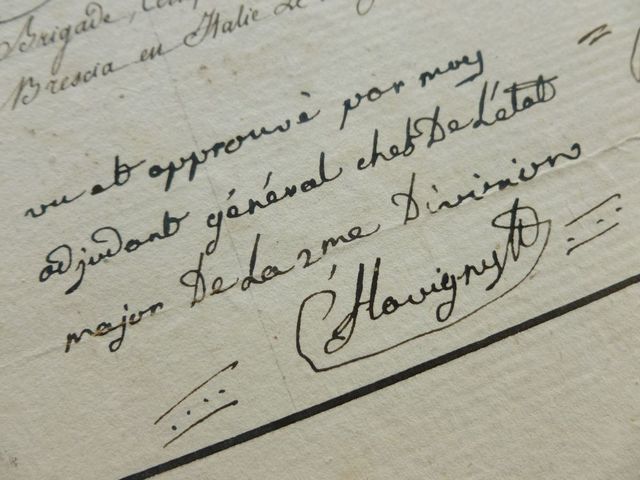 Brigade,
Brescia en Italie Le
vu et approuvé par moy
adjudant général chef De L'état
major De La 2me Division